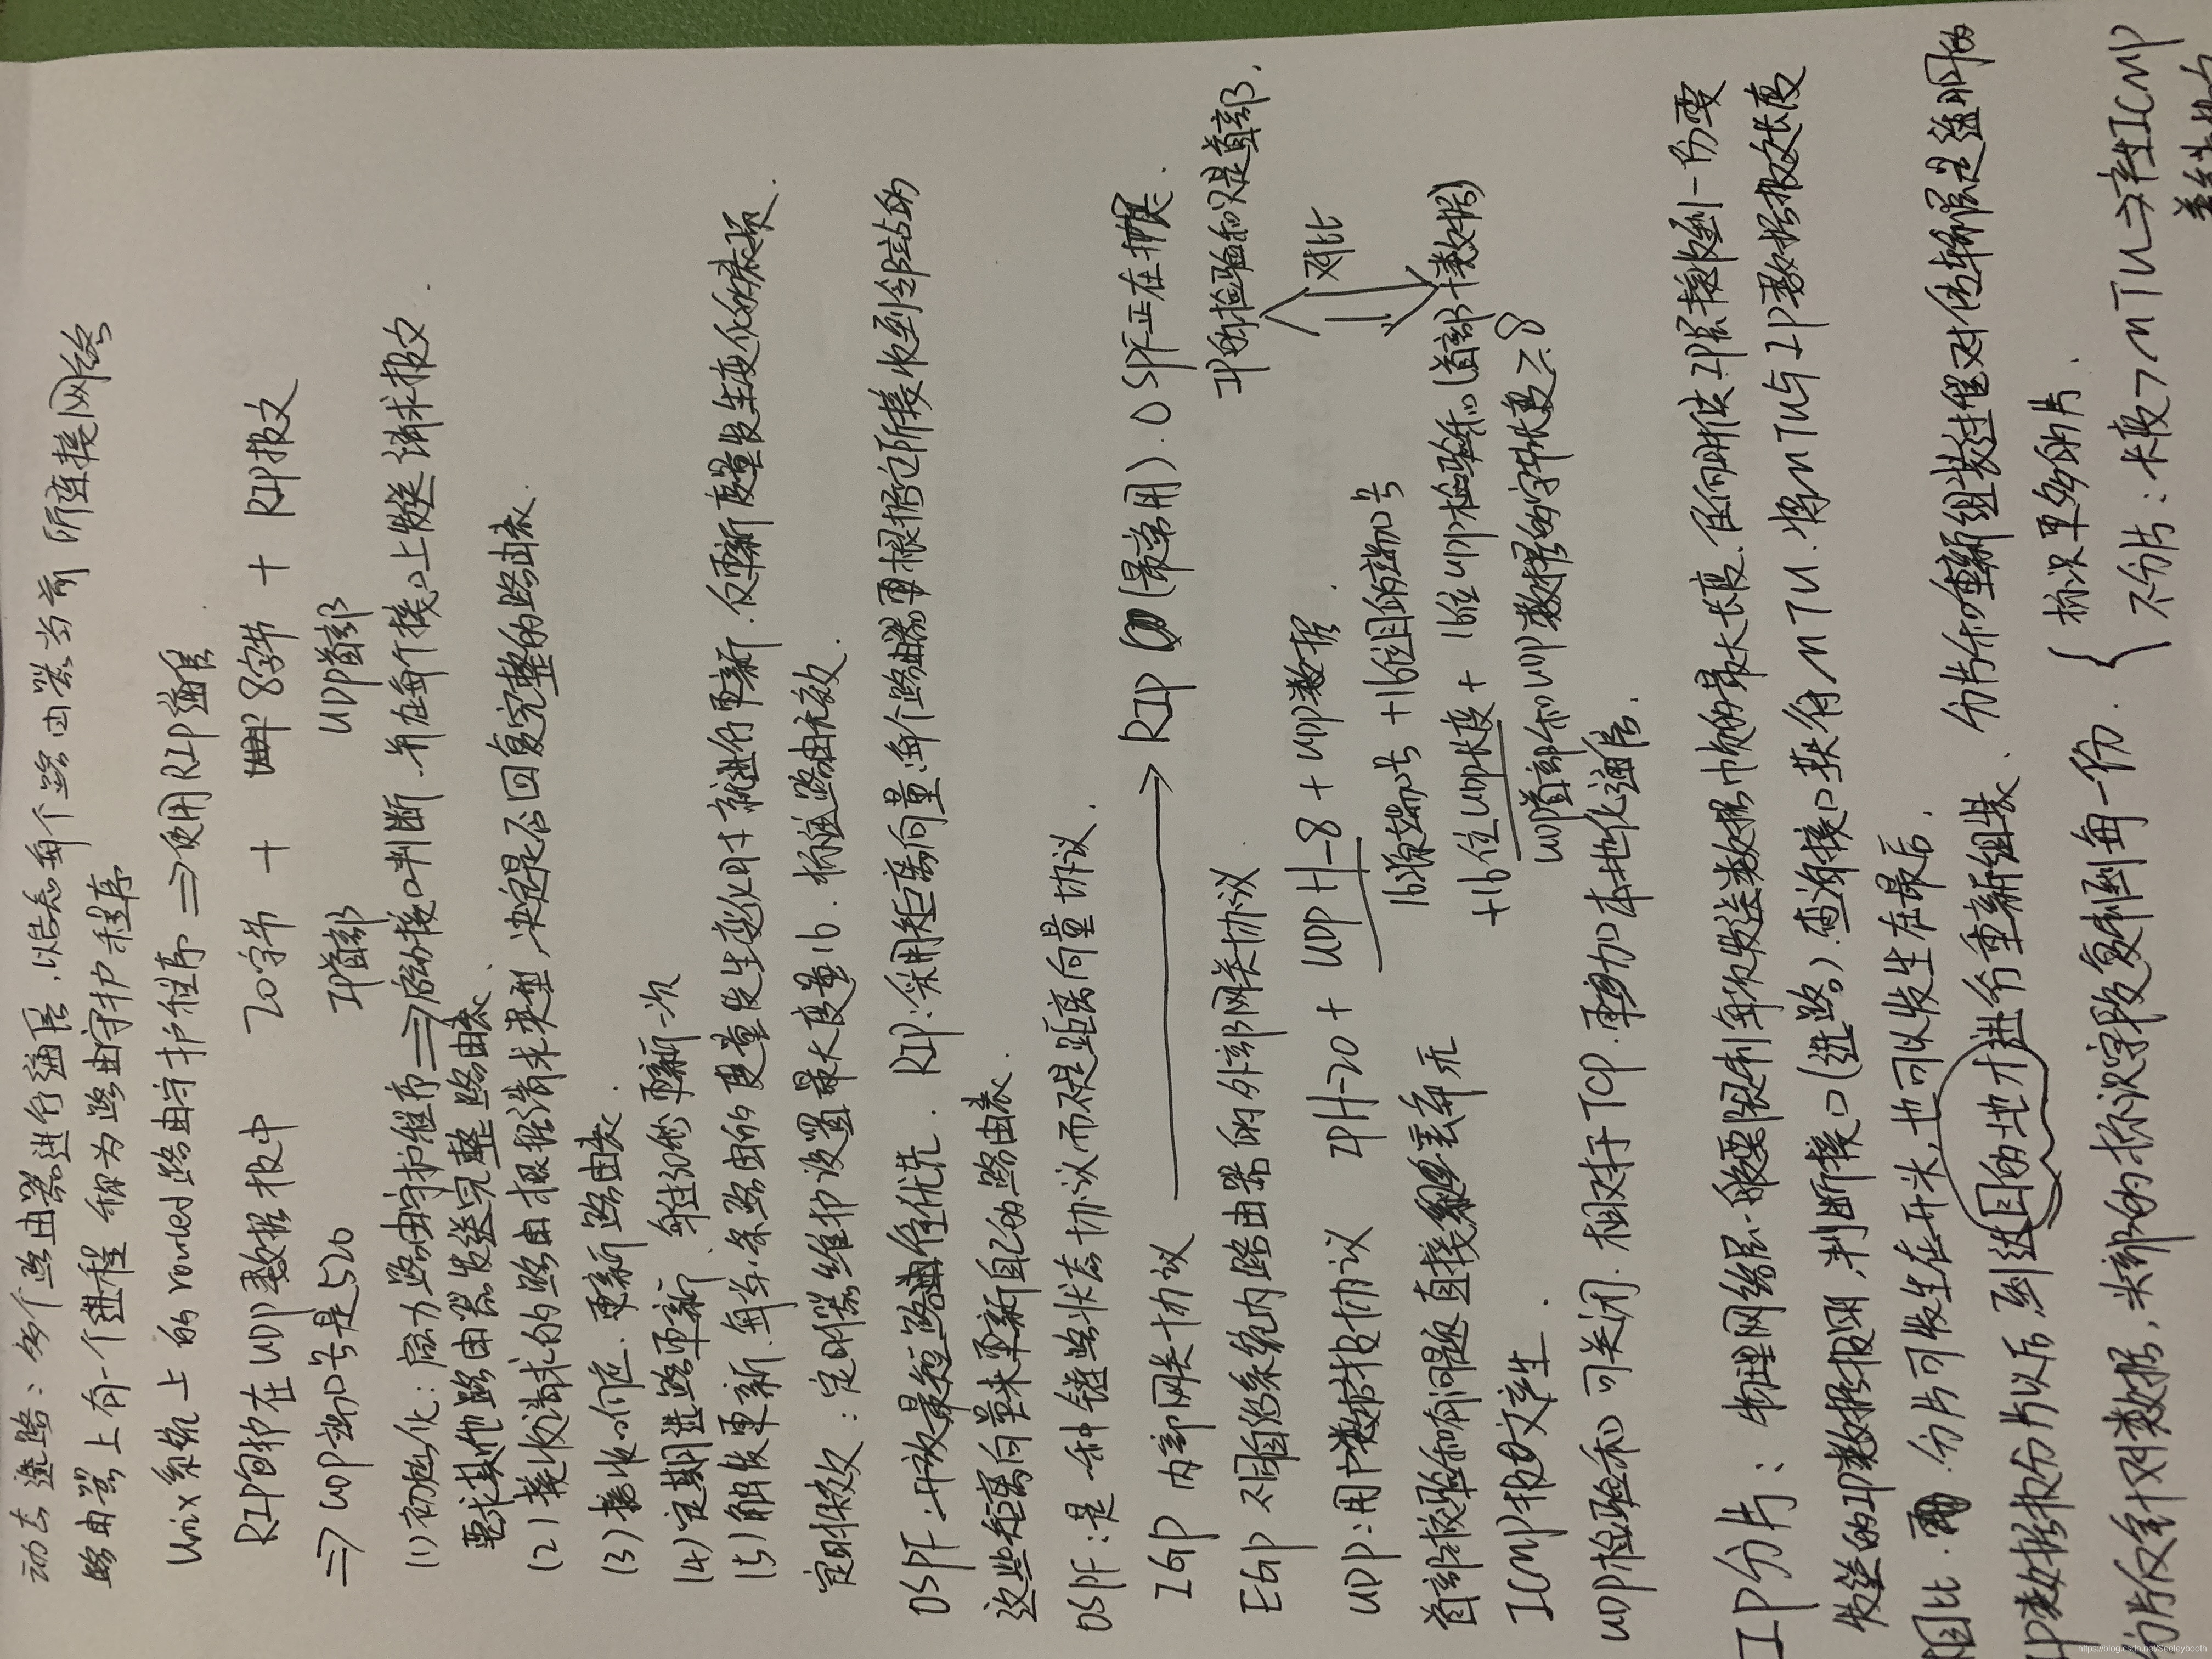 动态选路：每个路由器进行通信，以告知每个路由器当前所连接网络
路由器上有一个进程称为路由守护程序
Unix系统上的routed路由守护程序 ⇒使用RIP通信
RIP包护在UDP数据报中 20字节 + 8字节 + RIP报文
IP首部 UDP首部
⇒ UDP端口号是520
(1)初始化：启力路由守护程序⇒启动接口判断.并在每个接口上发送请求报文.
要求其他路由器发送完整路由表.
(2)接收请求的路由根据请求类型,决定是否回复完整的路由表.
(3)接收响应.更新路由表.
(4)定期选路更新.每过30秒更新一次
(5)触发更新.每当一条路由的度量发生变化时+就进行更新.仅更新度量发生变化的表项.
定时失效：定时器维护设置最大度量16.标注路由无效.
OSPF：开放最短路由优先. RIP：采用距离向量.每个路由器要根据它所接收到邻站的
这些距离向量来更新自己的路由表.
OSPF：是一种链路状态协议而不是距离向量协议.
IGP 内部网关协议 → RIP(最常用).OSPF正在扩展.
EGP 不同自治系统内路由器的外部网关协议.
IP的检验和只是首部.
对比
UDP：用户数据报协议 IPH-20 + UDP H-8 + UDP数据.
16源端口号 +16位目的端口号
+16位UDP长度 + 16位UDP检验和(首部+数据)
UDP首部和UDP数据的字节长度≥8
首部校验和有问题直接丢弃无
ICMP报文产生.
UDP检验和可关闭.相对于TCP.更加本地化通信.
IP分片：物理网络层一般要限制每次发送数据帧的最大长度.任何时候IP层接收到一份要
发送的IP数据报时,判断接口(选路).查询接口获得MTU.将MTU与IP数据报文长度
相比.分片可发生在开头,也可以发生在最后.
IP数据报分片以后到达目的地才进行重新组装、分片和重新组装过程对传输层是透明的
分片仅针对数据,头部的标识字段复制到每一份.{标识更多的片.
不分片：长度>MTU⇒产生ICMP
https://blog.csdn.net/Seeleybooth